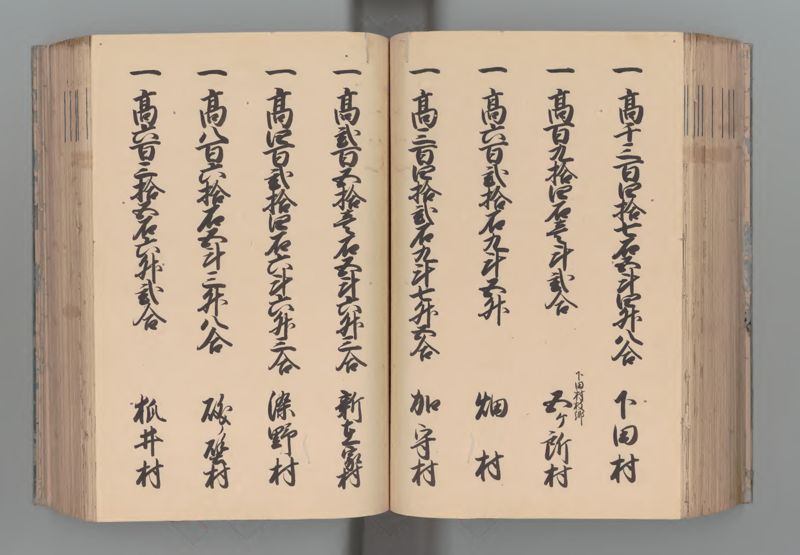 一 高千三百四拾七石五斗四升八合 下田村
一 高百九拾四石壱斗弐合 下田村枝郷 五ケ所村
一 高六百弐拾石九斗五升 畑村
一 高三百四拾弐石九斗七升五合 加守村
一 高弐百五拾壱石五斗六升三合 新在家村
一 高四百弐拾四石六斗六升三合 染野村
一 高八百六拾石五斗三升八合 磯壁村
一 高六百三拾五石六升弐合 狐井村